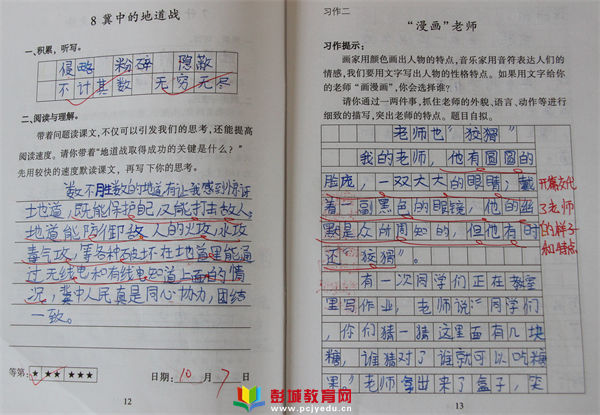 8 冀中的地道战
一、积累,听写。
侵略 粉碎 隐蔽
不计其数 无穷无尽
二、阅读与理解。
带着问题读课文,不仅可以引发我们的思考,还能提高
阅读速度。请你带着“地道战取得成功的关键是什么?”
先用较快的速度默读课文,再写下你的思考。
数不胜数的地道有让我感到惊讶
土地道,既能保护自己又能打击敌人。
地道能防御敌人的火攻,水攻
毒气攻,等各种破坏在地道里能通
过无线电和有线电知道上面的情
况,冀中人民真是同心协力,团结
一致。
等第: ★ ★★ ★★★
日期: 10 月 7 日
12
习作二
“漫画”老师
习作提示:
画家用颜色画出人物的特点,音乐家用音符表达人们的
情感,我们要用文字写出人物的性格特点。如果用文字给你
的老师“画漫画”,你会选择谁?
请你通过一两件事,抓住老师的外貌、语言、动作等进行
细致的描写,突出老师的特点。题目自拟。
老师也“狡猾”
我的老师,他有圆圆的
脸庞,一双大大的眼睛,戴
着一副黑色的眼镜,他的幽
默是众所周知的,但他有时
还“狡猾”。
开篇交代
了老师
的样子
和特点
有一次同学们正在教室
里写作业,老师说:“同学们
,你们猜一猜这里面有几块
糖,谁猜对了谁就可以吃糖
里”老师拿出来了盒子,笑
13
彭城教育网
www.pcjyedu.cn